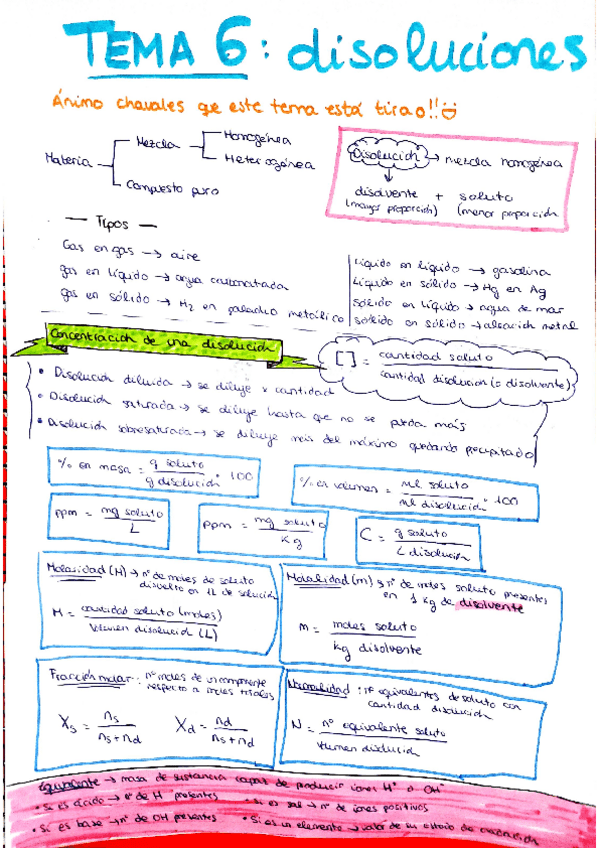 TEMA 6: disoluciones
Ánimo chavales que este tema está tirao!!
Materia
Mezcla
Homogénea
Heterogénea
Compuesto puro
Disolución → mezcla homogénea
disolvente + soluto
(mayor proporción) (menor proporción
— Tipos —
Gas en gas → aire
gas en líquido → agua carbonatada
gas en sólido → H₂ en paladio metálico
Líquido en líquido → gasolina
Líquido en sólido → Hg en Ag
sólido en líquido → agua de mar
sólido en sólido → aleación metal
Concentración de una disolución
[ ] = cantidad soluto / cantidad disolución (o disolvente)
• Disolución diluida → se diluye x cantidad
• Disolución saturada → se diluye hasta que no se pueda más
• Disolución sobresaturada → se diluye más del máximo quedando precipitado
% en masa = g soluto / g disolución · 100
% en volumen = mL soluto / mL disolución · 100
ppm = mg soluto / L
ppm = mg soluto / Kg
C = g soluto / L disolución
Molaridad (M) → nº de moles de soluto
disuelto en 1L de solución
M = cantidad soluto (moles) / Volumen disolución (L)
Molalidad (m) → nº de moles soluto presentes
en 1 Kg de disolvente
m = moles soluto / kg disolvente
Fracción molar: nº moles de un componente
respecto a moles totales
Xs = ns / ns + nd
Xd = nd / ns + nd
Normalidad: nº equivalentes de soluto con
cantidad disolución
N = nº equivalente soluto / Volumen disolución
Equivalente → masa de sustancia capaz de producir iones H⁺ o OH⁻
• Si es ácido → nº de H presentes
• Si es sal → nº de iones positivos
• Si es base → nº de OH presentes
• Si es un elemento → valor de su estado de oxidación